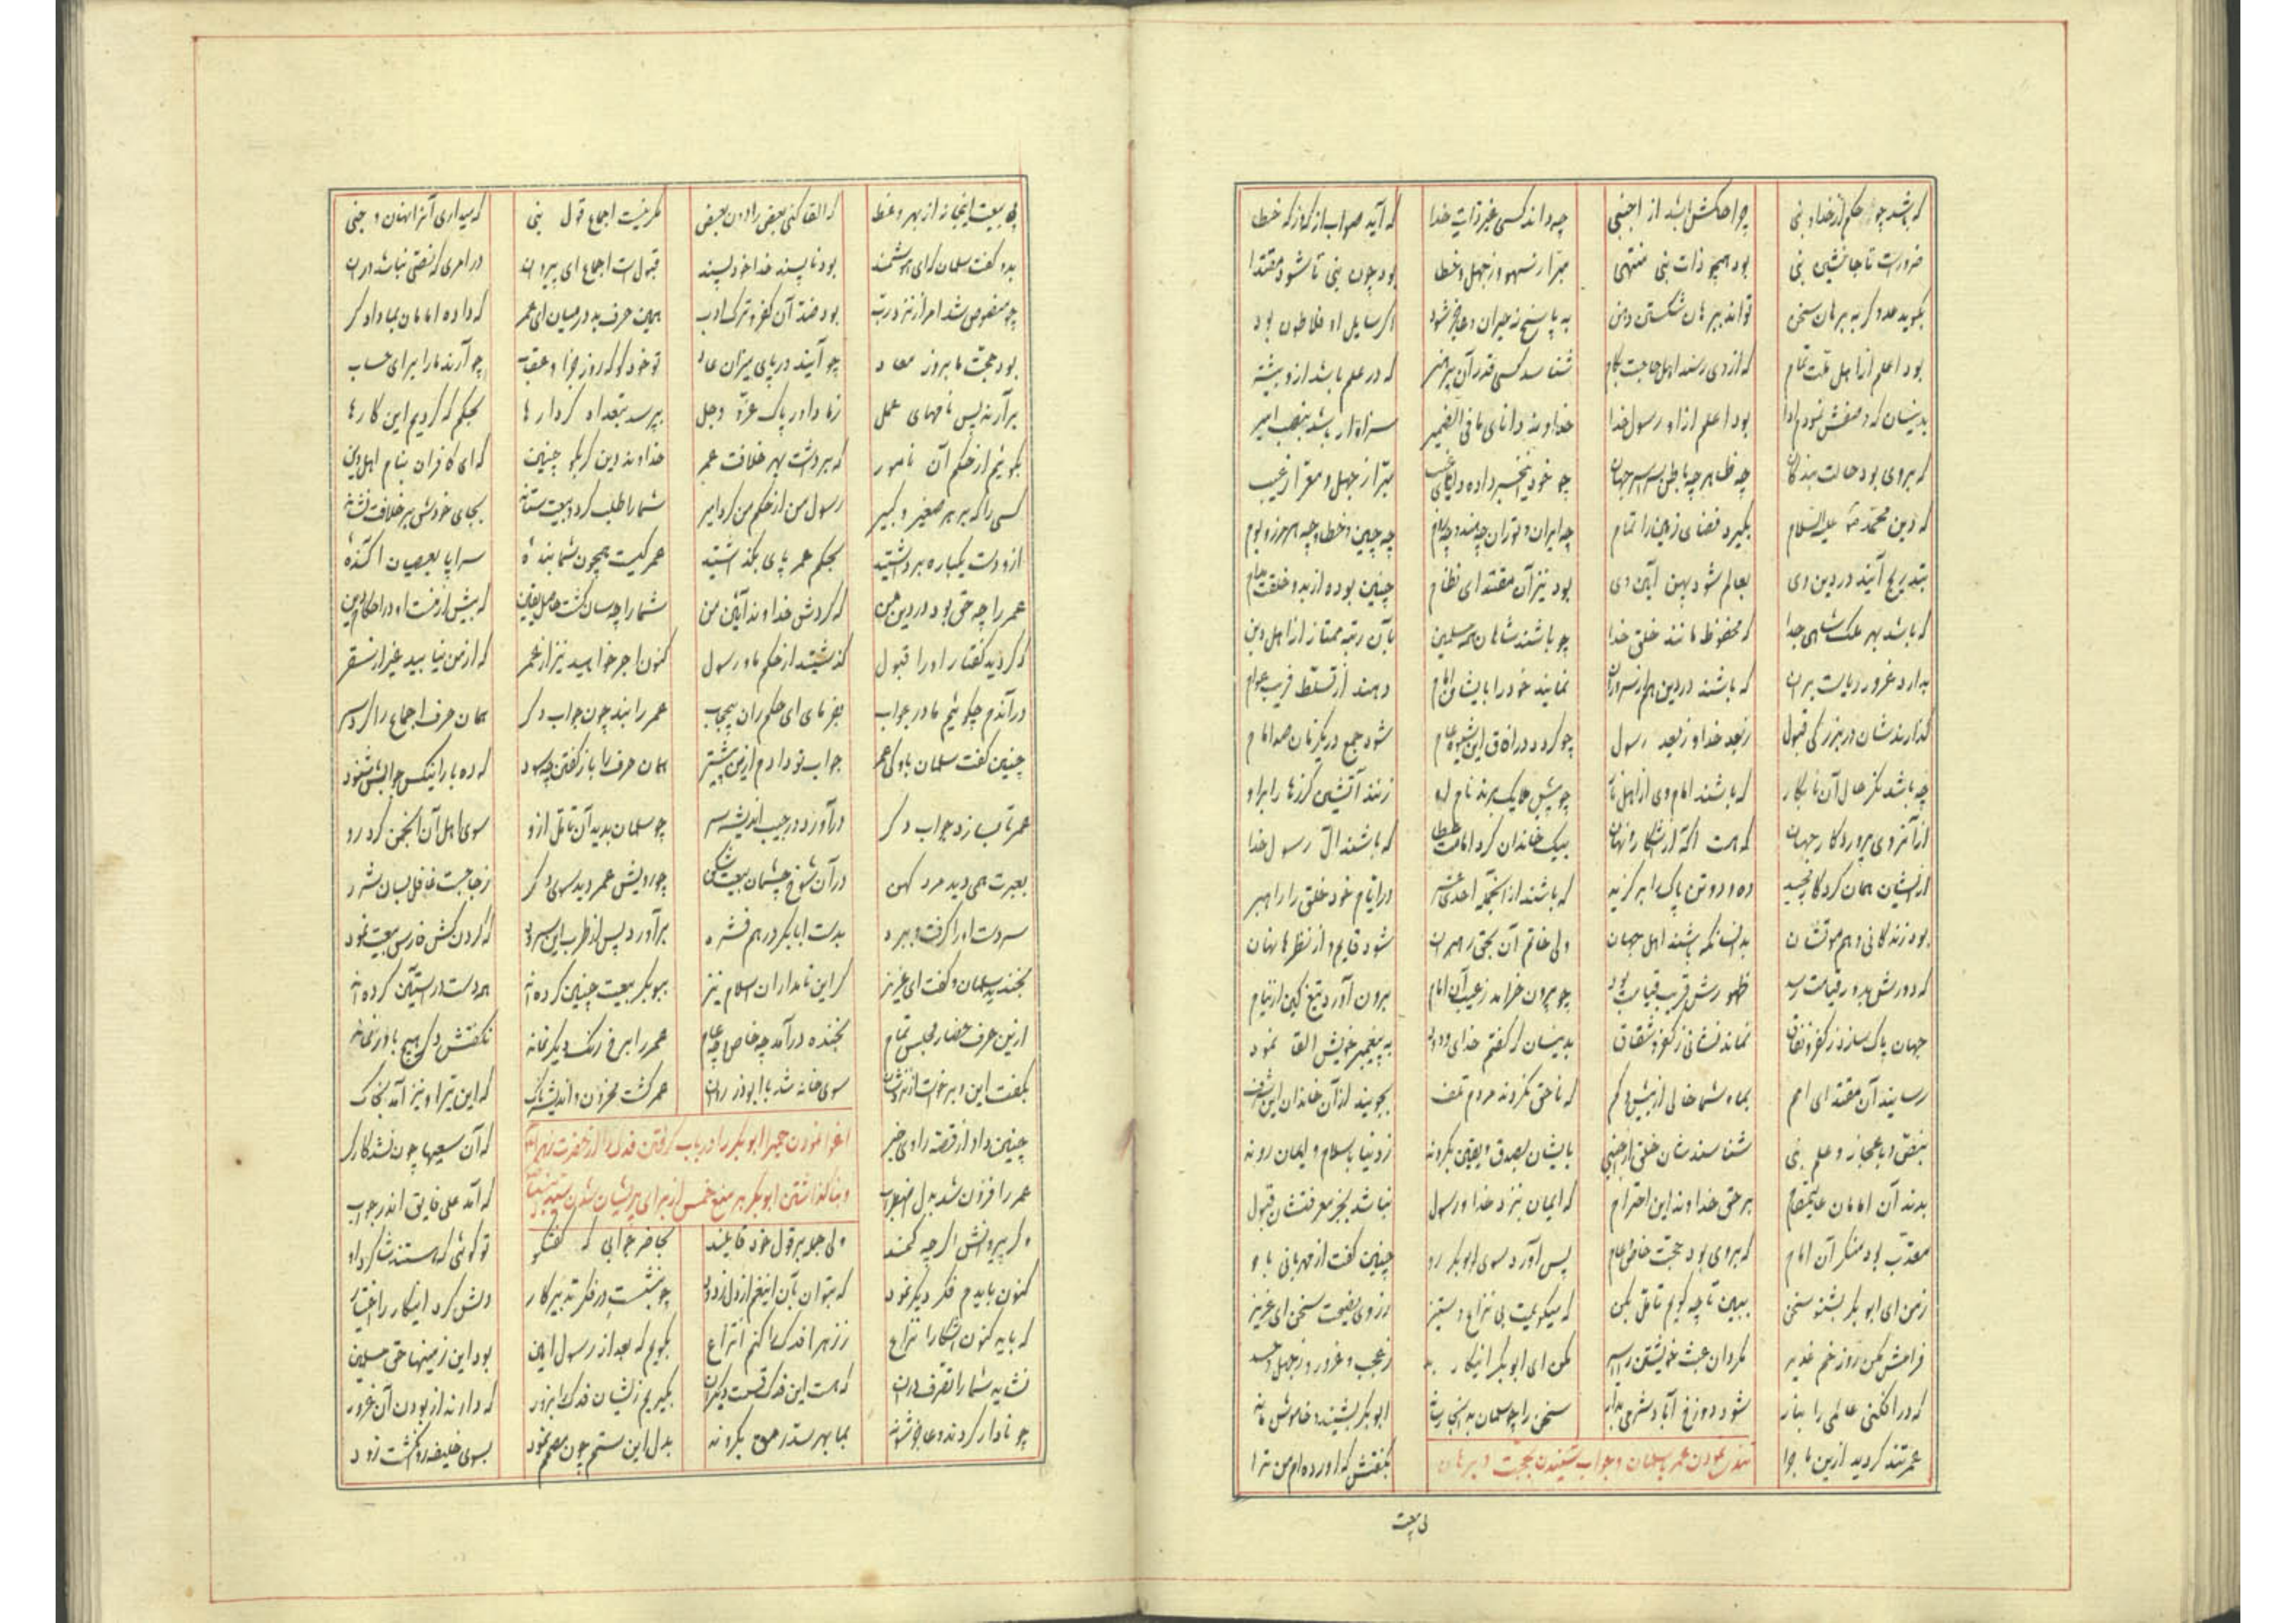 که باشد چو حکم از خدا و نبی چرا حکمش باشد از اجنبی چه داند کسی غیر ذات خدا که آید صواب از که و ز که خطا
ضرورست تا جانشین نبی بود همچو ذات نبی منتهی مبرا ز سهو و ز جهل و خطا بود چون نبی تا شود مقتدا
بگوید عدو گر به برهان سخن تواند ببرهان شکستن دهن به پاسخ نه حیران و عاجز شود اگر سایل او فلاطون بود
بود اعلم از اهل ملت تمام که از وی رسند اهل حاجت بکام شناسد کسی قدر آن پرهنر که در علم باشد ازو بیشتر
بدینسان که وصفش نمودم ادا بود اعلم از او رسول خدا خداوند دانای ما فی الضمیر سزاوار باشد بنصب امیر
که بر وی بود حالت بندگان چه ظاهر چه باطن سراسر جهان چو خود مبرا ز جهل و معرا ز عیب
که دین محمد علیه السلام بگیرد فضای زمین را تمام چه ایران و توران چه هند و چه شام چه چین و خطا و چه هر مرز و بوم
بتدریج آیند در دین وی بعالم شود پهن آیین وی بود نیز آن مقتدای نظام چنین بوده از بدو خلقت
که باشد بهر ملک شاهی جدا که محفوظ مانند خلق خدا چو باشند شاهان همه مسلمین بآن رتبه ممتاز از اهل دین
که باشند در دین هم از سروران نمایند خود را بایشان امام دهند از تسلط فریب عوام
گذارندشان در بزرگی قبول ز بعد خدا و ز بعد رسول چو گردد در آفاق این شیوه عام شود جمع در یکزمان صد امام
چه باشد مگر حال آن نابکار که باشند امام وی از اهل نار چو پیش ملایک برند نام او زنند آتشین گرزها را برو
از آنروی پروردگار جهان که هست آگه از آشکار و نهان بیک خاندان کرد امامت عطا که باشند آل رسول خدا
از ایشان همان کردگار مجید ده و دو تن پاک را برگزید که باشند از آنجمله احدی عشر در ایام خود خلق را راهبر
بود زندگانی و هم موتشان بدانسانکه باشند اهل جهان ولی خاتم آن بحق رهبران شود قایم و از نظرها نهان
که دورش بدور قیامت رسد ظهورش قریب قیامت بود چو بیرون خرامد ز غیب آن امام برون آورد تیغ کین از نیام
جهان پاک سازد ز کفر و نفاق نماند نشانی ز کفر و شقاق بدینسان که گفتم خدای ودود به پیغمبر خویش القا نمود
رسانید آن مقتدای امم بما و شما خالی از بیش و کم که ناحق نگردند مردم تلف بجویند از آن خاندان این شرف
بنص و باعجاز و علم نبی شناسندشان خلق از اجنبی بایشان بصدق و یقین بگروند ز دنیا باسلام و ایمان روند
بدند آن امامان بر حق خداوند این احترام که ایمان بنزد خدا و رسول نباشد بجز معرفتشان قبول
معذب بود منکر آن امام که بر وی بود حجت خاص و عام پس آورد سوی ابوبکر رو چنین گفت از مهربانی باو
ز من ای ابوبکر بشنو سخن ببین تا چه گویم تامل بکن که میگویمت بی نزاع و ستیز ز روی نصیحت سخن ای عزیز
فرامش مکن روز خم غدیر مگردان عبث خویشتن را اسیر مکن ای ابوبکر اینکار بد ز عجب و غرور و ز جهل و حسد
که در افکنی عالمی را بنار شود دوزخ آباد و شرعی مدار سخن را چو سلمان به اینجا رساند ابوبکر بشنید و خاموش ماند
عمر تند گردید ازین ماجرا تندی نمودن عمر با سلمان و جواب شنیدن بحجت و برهان بگفتش که آورده‌ام من ترا
پی بیعت
پی بیعت اینجا نه از بهر وعظ که القا کنی بعض را دون بعض مگر نیست اجماع قول نبی که میداری آنرا نهان و خبی
بدو گفت سلمان که ای هوشمند بود ناپسند خدا خودپسند قبول است اجماع ای پیر در امری که نصی نباشد در آن
چو منصوص شد امر از نزد رب بود ضد آن کفر و ترک ادب همین حرف بد در میان ای عمر که داده امامان بما دادگر
بود حجت ما بروز معاد چو آیند در پای میزان عباد تو خود گو که روز جزا و عقاب چو آرند ما را برای حساب
برآرند پس نامهای عمل ز ما داور پاک عز و جل بپرسد بتعداد کردارها بحکم که کردیم این کارها
بگوییم از حکم آن نامور که برداشت بهر خلافت عمر خداوند دین گر بگوید چنین که ای کافران بنام اهل دین
کسی را که بر هر صغیر و کبیر رسول من از حکم من کرد امیر شما را طلب کرد و بیعت ستاند بجای خودش بر خلافت نشاند
ازو دست یکباره برداشتید بحکم عمر پای بگذاشتید عمر کیست همچون شما بنده سراپا بعصیان آکنده
عمر را چه حق بود در دین من که گردش خداوند آیین من شما را چه سان گشت حاصل یقین که بیش از منست او در احکام دین
که کردید گفتار او را قبول گذشتید از حکم ما و رسول کنون اجر خواهید نیز از عمر که از من نیابید غیر از سقر
در آندم چگوئیم ما در جواب بفرمای ای حکمران عمر را نبد چون جواب دگر همان حرف اجماع را کرد سر
چنین گفت سلمان باو کی عمر جواب تو دادم ازین پیشتر همان حرف را باز گفتن چه سود که ده بار اینکس جوابش شنود
عمر تا بسازد جواب دگر درآورد در جیب اندیشه سر چو سلمان بدید آن تامل ازو سوی اهل آن انجمن کرد رو
بعبرت همی دید مرد کهن در آن شوخ چشمان بیعت شکن چو رویش عمر دید سوی دگر ز جا جست غافل بسان شرر
سر دست او را گرفت و ببرد بدست ابابکر در هم فشرد برآورد پس از طرب که گردن کش فارس بیعت نمود
بخندید سلمان و گفت ای عزیز گر این نامداران اسلام نیز ببوبکر بیعت چنین کرده‌اند همه دست در آستین کرده‌اند
ازین حرف حضار مجلس تمام بخنده درآمد چه خاص و چه عام عمر را بر رخ رنگ دیگر نماند نگفتش دگر هیچ با او نماند
بگفت این و برخاست از نزدشان سوی خانه شد با ابوذر روان عمر گشت محزون و اندیشناک که این تیر او نیز آمد بخاک
چنین داد از قصه راوی خبر اغوا نمودن عمر ابوبکر را در باب گرفتن فدک از حضرت زهرا که آن سعیها چون نشد کارگر
عمر را فزون شد بدل اضطراب و بنا گذاشتن ابوبکر بر منع خمس از برای پریشان شدن که آمد علی فایق اندر جواب
دگر پیروانش اگر چه کمند ولی جمله بر قول خود قایمند بحاضر جوابی که گفتگو تو گوئی که هستند شاگرد او
کنون بایدم فکر دیگر نمود که بتوان بآن اینغم از دل زدود چو بنشست در فکر تدبیر کار دلش کرد اینکار را اختیار
که باید کنون آشکارا نزاع ز زهرا فدک را کنم انتزاع بگویم که بعد از رسول امین بود این زمینها حق مسلمین
نشاید شما را تصرف در آن که هست این فدک قسمت دیگران بگیریم زیشان فدک را بزور که دارند از بودن آن غرور
چو نادار گردند و عاجز شوند بما بهر سد رمق بگروند بدل این ستم چون مصمم نمود بسوی خلیفه روان گشت زود